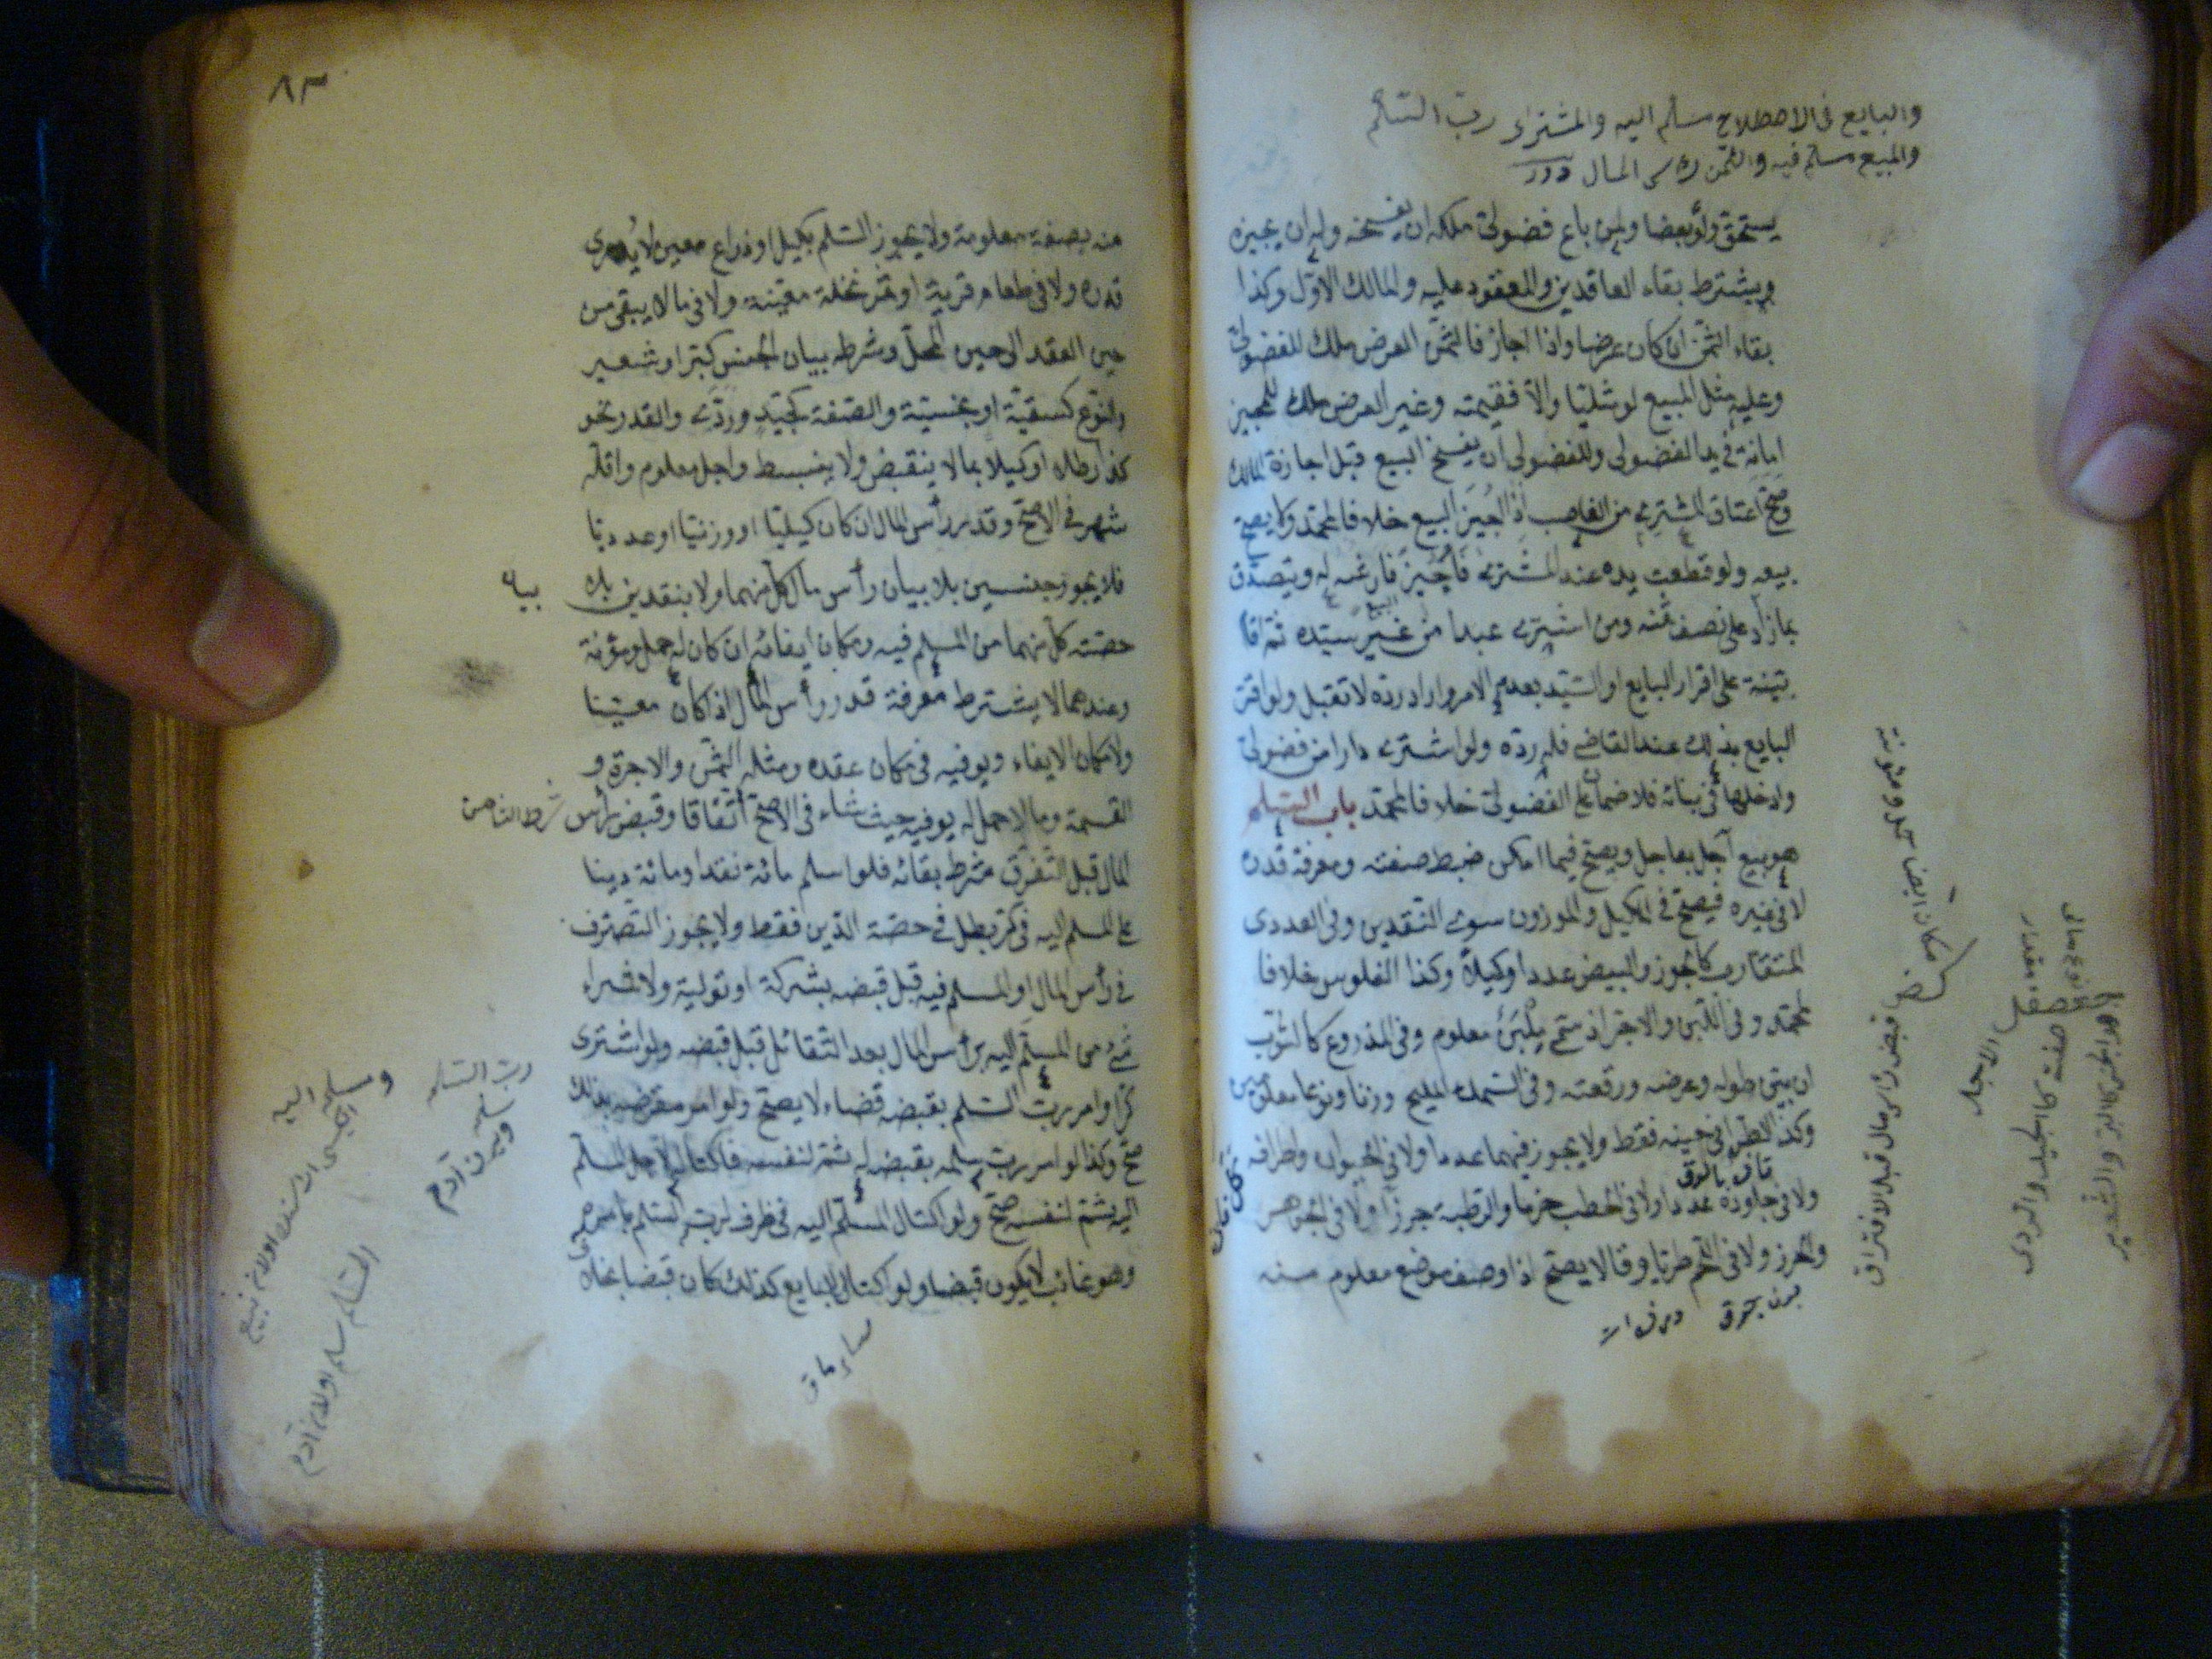 والبايع فى الاصطلاح مسلم اليه والمشترى رب السلم
والمبيع مسلم فيه والثمن رأس المال درر
يستحق ولو بعضا ولمن باع فضولى ملكه ان يفسخه وله ان يجيزه
ويشترط بقاء العاقدين والمعقود عليه والمالك الاول وكذا
بقاء الثمن ان كان عرضا واذا اجاز فالثمن العرض ملك للفضولى
وعليه مثل المبيع لو مثليا والا فقيمته وغير العرض ملك للمجيز
امانة فى يد الفضولى وللفضولى ان يفسخ البيع قبل اجازة المالك
وصح اعتاق المشترى من الغاصب اذا اجيز البيع خلافا لمحمد ولا يصح
بيعه ولو قطعت يده عند المشترى فاجيز فارشه له ويتصدق
بما زاد على نصف ثمنه ومن اشترى عبدا من غير سيده ثم اقا
بينة على اقرار البايع او السيد بعدم الامر واراد رده لا تقبل ولو اقر
البايع بذلك عند القاضى فله رده ولو اشترى دارا من فضولى
وادخلها فى بنائه فلا ضمان على الفضولى خلافا لمحمد باب السلم
هو بيع آجل بعاجل ويصح فيما امكن ضبط صفته ومعرفة قدره
لا فى غيره فيصح فى المكيل والموزون سوى النقدين وفى العددى
المتقارب كالجوز والبيض عددا وكيلا وكذا الفلوس خلافا
لمحمد وفى اللبن والآجر اذا سمى ملبن معلوم وفى المذروع كالثوب
ان بين طوله وعرضه ورقعته وفى السمك المليح وزنا ونوعا معلومين
وكذا الطرى فى حينه فقط ولا يجوز فيهما عددا ولا فى الحيوان واطرافه
ولا فى جلوده عددا ولا فى الحطب حزما والرطبة جرزا ولا فى الجوهر
والخرز ولا فى اللحم طريا وقالا يصح اذا وصف موضع معلوم منه
مكان ايفا حمل ومئونة
قبض رأس مال قبل الافتراق
الاجل
صفت كالجيد والردى
٨٣
منه بصفة معلومة ولا يجوز السلم بكيل او ذراع معين لا يدرى
قدره ولا فى طعام قرية او تمر نخلة معينة ولا فى ما لا يبقى من
حين العقد الى حين المحل وشرطه بيان الجنس كبر او شعير
والنوع كسقية او بخسية والصفة كجيد وردى والقدر نحو
كذا رطلا او كيلا بما لا ينقبض ولا ينبسط واجل معلوم واقله
شهر فى الاصح وقدر رأس المال ان كان كيليا او وزنيا او عدديا
فلا يجوز جنسين بلا بيان رأس مال كل منهما ولا بنقدين بلا بيان
حصته كل منهما من المسلم فيه ومكان ايفائه ان كان له حمل ومؤنة
وعندهما لا يشترط معرفة قدر رأس المال اذا كان معينا
ولا مكان الايفاء ويوفيه فى مكان عقده ومثله الثمن والاجرة و
القسمة وما لا حمل له يوفيه حيث شاء فى الاصح اتفاقا وقبض رأس
شرط الثامن
المال قبل التفرق شرط بقائه فلو اسلم مائة نقدا ومائة دينا
على المسلم اليه فى كر بطل فى حصة الدين فقط ولا يجوز التصرف
فى رأس المال او المسلم فيه قبل قبضه بشركة او تولية ولا شراء
شئ من المسلم اليه برأس المال بعد التقائل قبل قبضه ولو اشترى
كرا وامر رب السلم بقبضه قضاء لا يصح ولو امر مقرضه بذلك
صح وكذا لو امر رب سلمه بقبضه له ثم لنفسه فاكتاله لاجل المسلم
اليه ثم لنفسه صح ولو اكتال المسلم اليه فى ظرف رب السلم بامره
وهو غائب لا يكون قبضا ولو اكتال البايع كذلك كان قبضا بخلاف
رب السلم
ويرن آدم